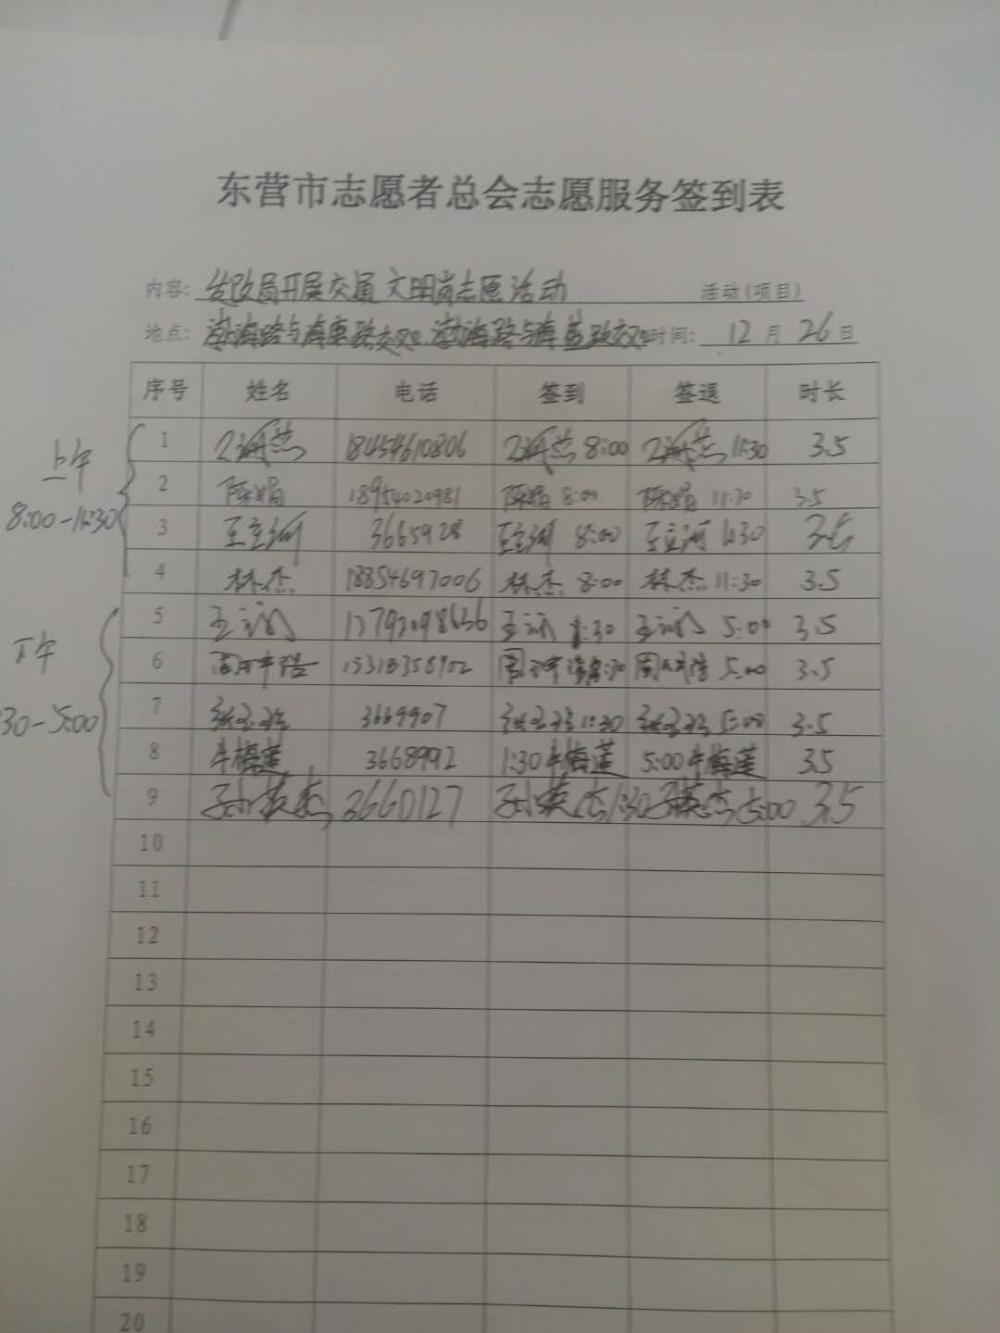 东营市志愿者总会志愿服务签到表
内容: 发改局开展交通文明岗志愿活动 活动(项目)
地点: 渤海路与 渤海路与 时间: 12月26日
序号 姓名 电话 签到 签退 时长
上午
8:00-11:30
1 18454610806 8:00 11:30 3.5
2 陈娟 18954020981 陈娟 8:00 陈娟 11:30 3.5
3 王立河 3665928 王立河 8:00 王立河 11:30 3.5
4 林杰 18854697006 林杰 8:00 林杰 11:30 3.5
下午
30-5:00
5 王 王 1:30 王 5:00 3.5
6 周 15318358902 周 :30 周 5:00 3.5
7 张 3669907 张 1:30 张 5:00 3.5
8 牛梅莲 3668992 1:30 牛梅莲 5:00 牛梅莲 3.5
9 孙英杰 3660127 孙英杰 1:30 孙英杰 5:00 3.5
10
11
12
13
14
15
16
17
18
19
20